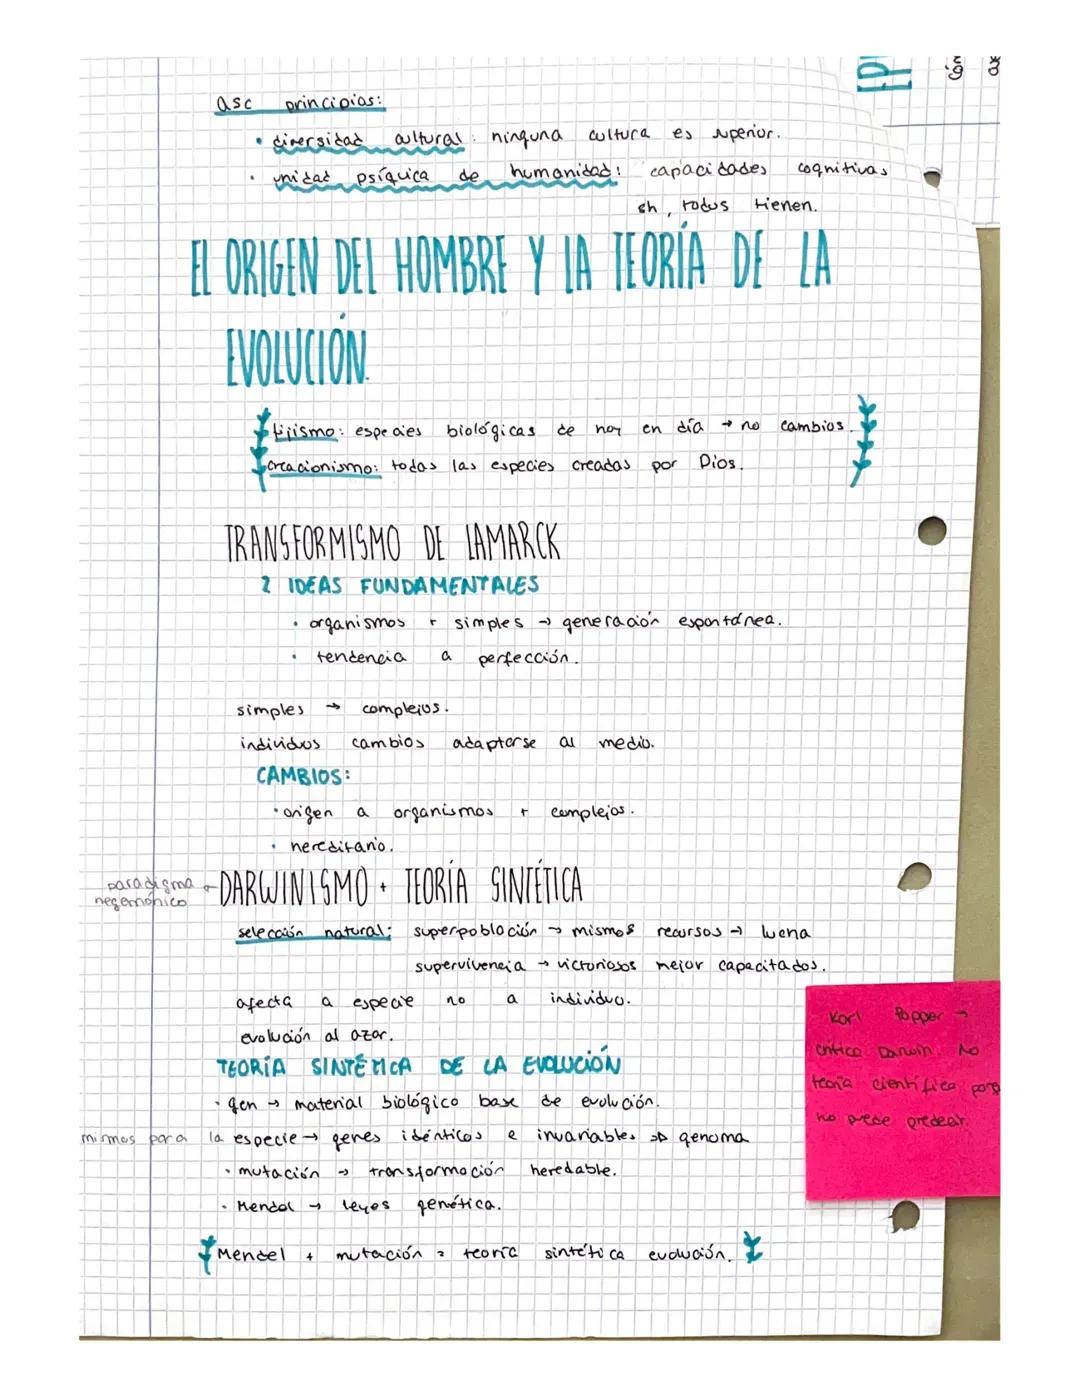 asc principios:
• diversidad cultural: ninguna cultura es superior.
• unidad psíquica de humanidad: capacidades cognitivas
sh, todos tienen.
EL ORIGEN DEL HOMBRE Y LA TEORÍA DE LA
EVOLUCIÓN.
Fijismo: especies biológicas de hoy en día → no cambios.
creacionismo: todas las especies creadas por Dios.
TRANSFORMISMO DE LAMARCK
2 IDEAS FUNDAMENTALES
• organismos + simples → generación espontánea.
• tendencia a perfección.
simples → complejos.
individuos cambios adaptarse al medio.
CAMBIOS:
• origen a organismos + complejos.
• hereditario.
paradigma
hegemónico
DARWINISMO + TEORÍA SINTÉTICA
selección natural: superpoblación → mismos recursos → lucha
supervivencia → victoriosos mejor capacitados.
afecta a especie no a individuo.
evolución al azar.
TEORÍA SINTÉTICA DE LA EVOLUCIÓN
• gen → material biológico base de evolución.
mismos para la especie → genes idénticos e invariables ⇒ genoma
• mutación → transformación heredable.
• Mendel → leyes genética.
Mendel + mutación = teoría sintética evolución.
Karl Popper →
crítica Darwin. No
teoría científica porq
no puede predecir.